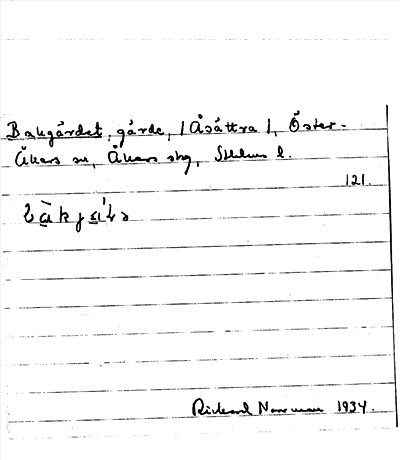 Bakgårdet, gärde, / Åsättra /, Öster-
Åkers sn, Åkers skg, Sthlms l.
121.
Rickard Norrman 1934.